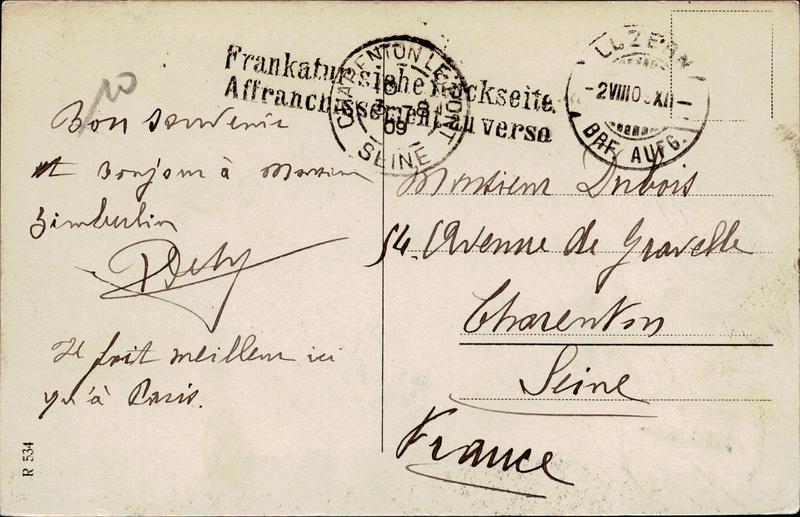 Frankatur siehe Rückseite.
Affranchissement au verso
CHARENTON LE PONT
09
SEINE
LUZERN
-2VIII0 XI-
BRF. AUFG.
Bon souvenir
et bonjour à Monsieur
Il fait meilleur ici
qu'à Paris.
Monsieur Dubois
54. Avenue de Gravelle
Charenton
Seine
France
R 534